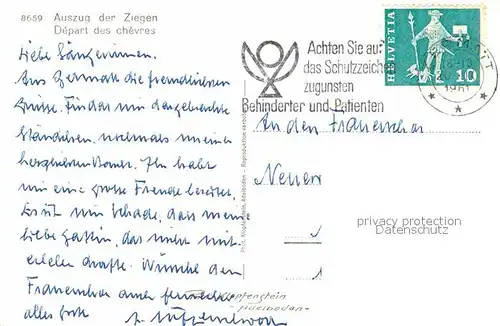 8659 Auszug der Ziegen
Départ des chèvres
Liebe Sängerinnen.
Aus Zermatt die freundlichsten
Grüsse. Für das mir dargebrachte
Ständchen, nochmals meinen
herzlichsten Dank. Ihr habt
mir eine große Freude bereitet.
Es ist nur schade, dass meine
liebe Gattin, das nicht mit-
erleben durfte. Wünsche dem
Frauenchor auch fernerhin
alles Gute
HELVETIA
10
Achten Sie auf
das Schutzzeichen
zugunsten
Behinderter und Patienten
An den Frauenchor
privacy protection
Datenschutz
Klopfenstein
Adelboden
Phot. Klopfenstein, Adelboden - Reproduktion verboten